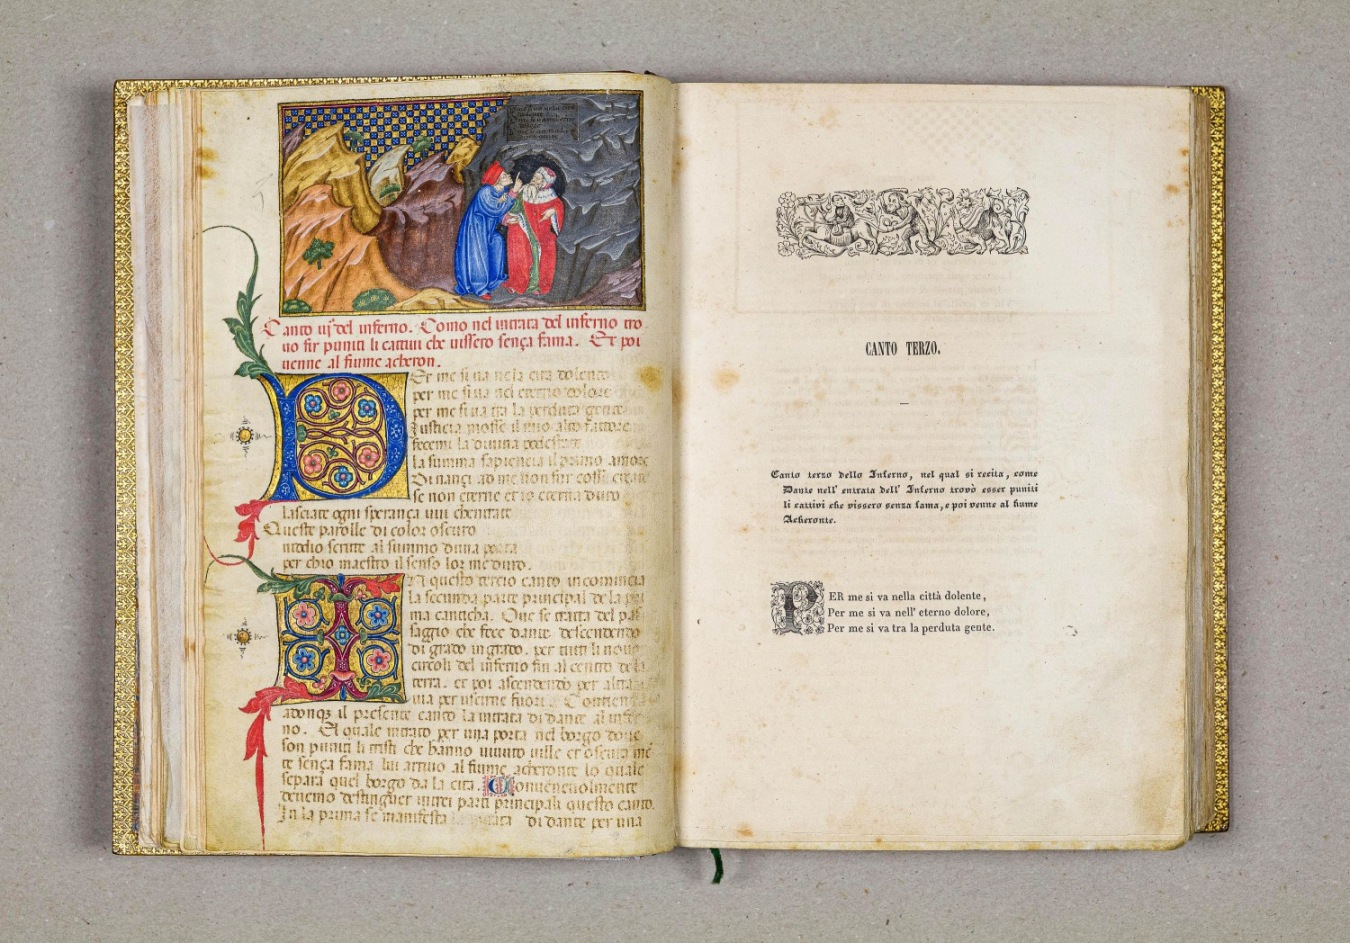 Canto iij del inferno. Como nel intrata del inferno tro
uo fir puniti li cattiui che uissero sença fama. Et poi
uenne al fiume acheron.
Per me si ua ne la cita dolente
per me si ua nel eterno dolore
per me si ua tra la perduta gente
Justicia mosse il mio alto fattore
fecemi la diuina podestate
la summa sapiencia il primo amore
Dinançi a me non fur cosse create
se non eterne et io eterna duro
lasciate ogni sperança uui chentrate
Queste parolle di color oscuro
uidio scritte al summo duna porta
per chio maestro il senso lor me duro.
In questo tercio canto incomincia
la secunda parte principal de la pri
ma canticha. Oue se tratta del pas
saggio che fece dante descendendo
di grado in grado. per tutti li noue
circoli del inferno fin al centro de la
terra. et poi ascendendo per altra
uia per uscirne fuori. Contiene
adonqꝫ il presente canto la intrata di dante al infer
no. El quale intrato per una porta nel borgo doue
son puniti li tristi che hanno uiuuto uille et oscura me
te sença fama lui arriuo al fiume acheronte lo quale
separa quel borgo da la cita. Conueneuolmente
deuemo destinguer in trei parti principali questo canto.
In la prima se manifesta la intrata di dante per una
CANTO TERZO.
Canto terzo dello Inferno, nel qual si recita, come
Dante nell' entrata dell' Inferno trovò esser puniti
li cattivi che vissero senza fama, e poi venne al fiume
Acheronte.
PER me si va nella città dolente,
Per me si va nell' eterno dolore,
Per me si va tra la perduta gente.